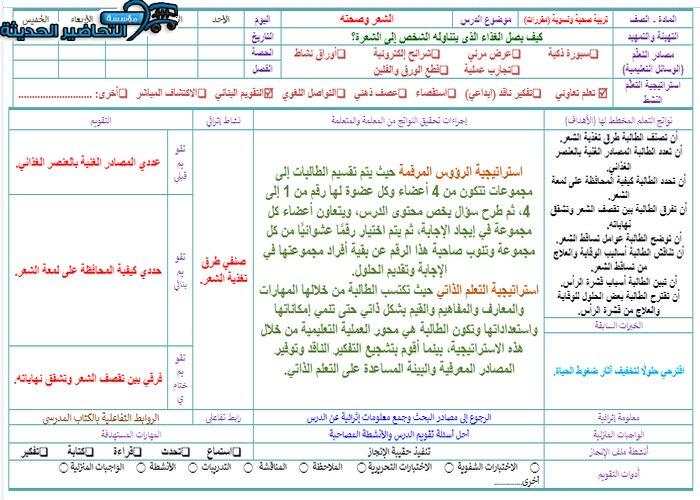 مؤسسة
التحاضير الحديثة
المادة - الصف
تربية صحية ونسوية (مقررات)
موضوع الدرس
الشعر وصحته
اليوم
الأحد
الأربعاء
الخميس
التهيئة والتمهيد
كيف يصل الغذاء الذي يتناوله الشخص إلى الشعرة؟
التاريخ
مصادر التعلّم
(الوسائل التعليمية)
سبورة ذكية
عرض مرئي
شرائح إلكترونية
أوراق نشاط
تجارب عملية
قطع الورق والفلين
الحصة
الفصل
استراتيجية التعلّم
النشط
تعلم تعاوني
تفكير ناقد (إبداعي)
استقصاء
عصف ذهني
التواصل اللغوي
التقويم البنائي
الاكتشاف المباشر
أخرى: ............................
نواتج التعلم المخطط لها (الأهداف)
إجراءات تحقيق النواتج من المعلمة والمتعلمة
نشاط إثرائي
التقويم
أن تصنف الطالبة طرق تغذية الشعر.
أن تعدد الطالبة المصادر الغنية بالعنصر
الغذائي.
أن تحدد الطالبة كيفية المحافظة على لمعة
الشعر.
أن تفرق الطالبة بين تقصف الشعر وتشقق
نهاياته.
أن توضح الطالبة عوامل تساقط الشعر.
أن تناقش الطالبة أساليب الوقاية والعلاج
من تساقط الشعر.
أن تبين الطالبة أسباب قشرة الرأس.
أن تقترح الطالبة بعض الحلول للوقاية
والعلاج من قشرة الرأس.
الخبرات السابقة
اقترحي حلولًا لتخفيف آثار ضغوط الحياة.
استراتيجية الرؤوس المرقمة حيث يتم تقسيم الطالبات إلى
مجموعات تتكون من 4 أعضاء وكل عضوة لها رقم من 1 إلى
4، ثم طرح سؤال يخص محتوى الدرس، ويتعاون أعضاء كل
مجموعة في إيجاد الإجابة، ثم يتم اختيار رقمًا عشوائيًا من كل
مجموعة وتنوب صاحبة هذا الرقم عن بقية أفراد مجموعتها في
الإجابة وتقديم الحلول.
استراتيجية التعلم الذاتي حيث تكتسب الطالبة من خلالها المهارات
والمعارف والمفاهيم والقيم بشكل ذاتي حتى تنمي إمكاناتها
واستعداداتها وتكون الطالبة هي محور العملية التعليمية من خلال
هذه الاستراتيجية، بينما أقوم بتشجيع التفكير الناقد وتوفير
المصادر المعرفية والبيئة المساعدة على التعلم الذاتي.
صنفي طرق
تغذية الشعر.
تقو
يم
قبلي
عددي المصادر الغنية بالعنصر الغذائي.
تقو
يم
بنائي
حددي كيفية المحافظة على لمعة الشعر.
تقو
يم
ختام
ي
فرقي بين تقصف الشعر وتشقق نهاياته.
معلومة إثرائية
الرجوع إلى مصادر البحث وجمع معلومات إثرائية عن الدرس
رابط تفاعلي
الروابط التفاعلية بالكتاب المدرسي
الواجبات المنزلية
أحل أسئلة تقويم الدرس والأنشطة المصاحبة
المهارات المستهدفة
أنشطة ملف الإنجاز
تنفيذ حقيبة الإنجاز
استماع
تحدث
قراءة
كتابة
تفكير
أدوات التقويم
الاختبارات الشفوية
الاختبارات التحريرية
الملاحظة
المناقشة
التدريبات
الأنشطة
الواجبات المنزلية
أخرى..........................